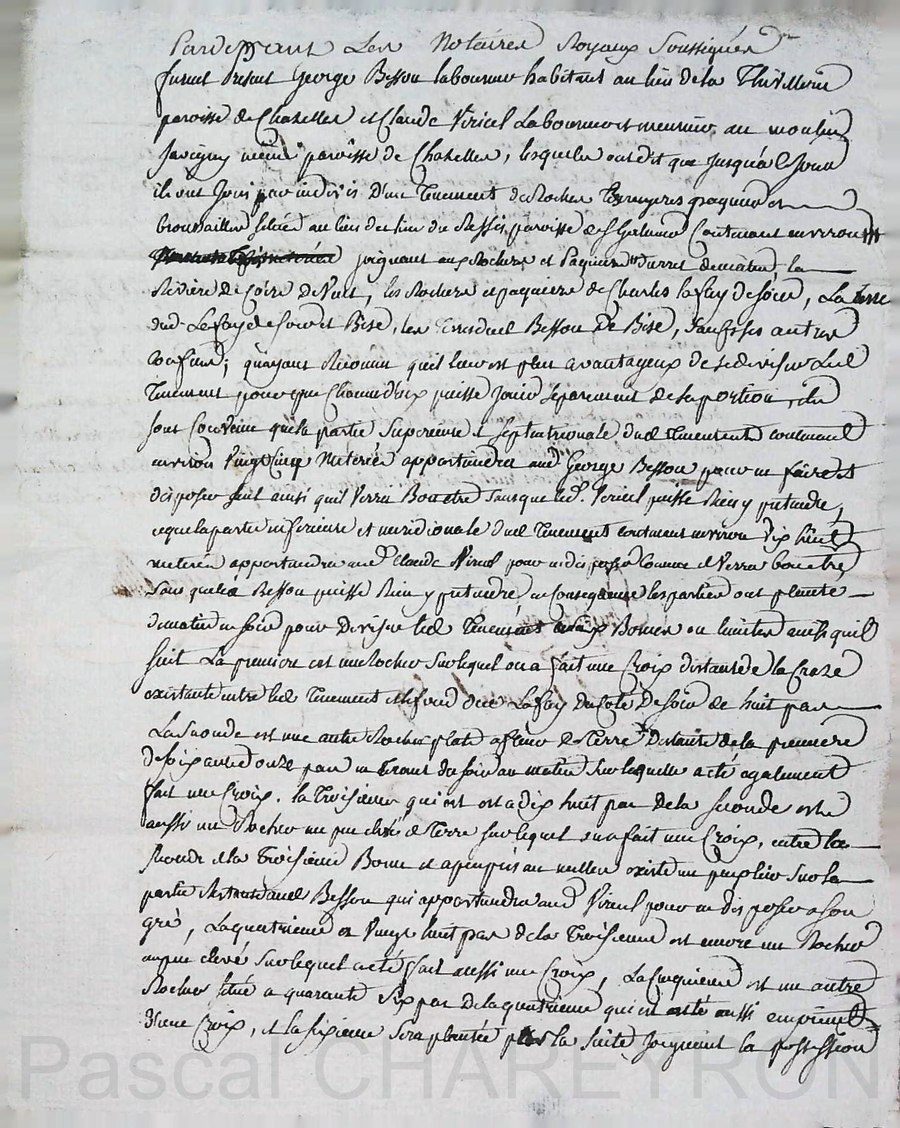 Pardevant Les Notaires Royaux Soussignés
furent Present George Besson laboureur habitant au lieu de la Thivillerie
paroisse de Chazelles et Claude Viricel Laboureur et meunier au moulin
Savigny meme paroisse de Chazelles, lesquels ont dit que Jusqu'a ce Jour
ils ont Joui par indivis D'un Tenement de Rocher Bruyeres paquier et
broussailles Situé au lieu du Ressis paroisse de St Galmier Contenant environ
joignant aux Rochers et Paquiers de matin, la
Riviere de Coize De Vent, les Rochers et paquiers de Charles Lafay de Soir, La terre
dud. Lafay de Soir et Bise, les Terres dud Besson De Bise, Sauf ses autres
Confins; qu'ayant Reconnu qu'il leur est plus avantageux de se diviser Led
Tenement pour que Chacun d'eux puisse Jouir Separement de Sa portion, ils
Sont Convenu que la partie Superieure et Septentrionale dud Tenement contenant
environ Vingt Cinq Meterée appartiendra aud George Besson pour en faire et
disposer Soit ainsi qu'il Verra Bon etre Sans que led. Viricel puisse Rien y pretendre,
et que la partie inferieure et meridionale dud Tenement contenant environ Dix huit
meterée appartiendra aud Claude Viricel pour en disposer Comme il Verra bon etre,
Sans que led Besson puisse Rien y pretendre, en Consequence les parties ont planté
de matin en Soir pour Diviser led Tenement Bornes ou limites ainsi qu'il
Suit La premiere est un Rocher Sur lequel on a fait une Croix distante de la Croze
existante entre led Tenement et le fond dud Lafay du Coté De Soir de huit pas
La Seconde est une autre Rocher plate a fleur de Terre Distante de la premiere
de Soixante et onze pas en tirant du Soir au matin Sur laquelle a été egalement
fait une Croix. la Troisieme qui est a dix huit pas de la Seconde est
aussi un Rocher un peu elevé de Terre Sur lequel on a fait une Croix, entre la
Seconde et la Troisieme Borne et a peu près au milieu existe un peuplier Sur la
partie Restante aud Besson qui appartiendra aud Viricel pour en disposer a Son
gré, La quatrieme a Vingt huit pas de la Troisieme est encore un Rocher
un peu elevé Sur lequel a été fait aussi une Croix, La Cinquieme est un autre
Rocher Situé a quarante Six pas de la quatrieme qui est aussi empreint
D'une Croix, et la Sixieme Sera plantée a la Suite Joignant la possession
Pascal CHAREYRON